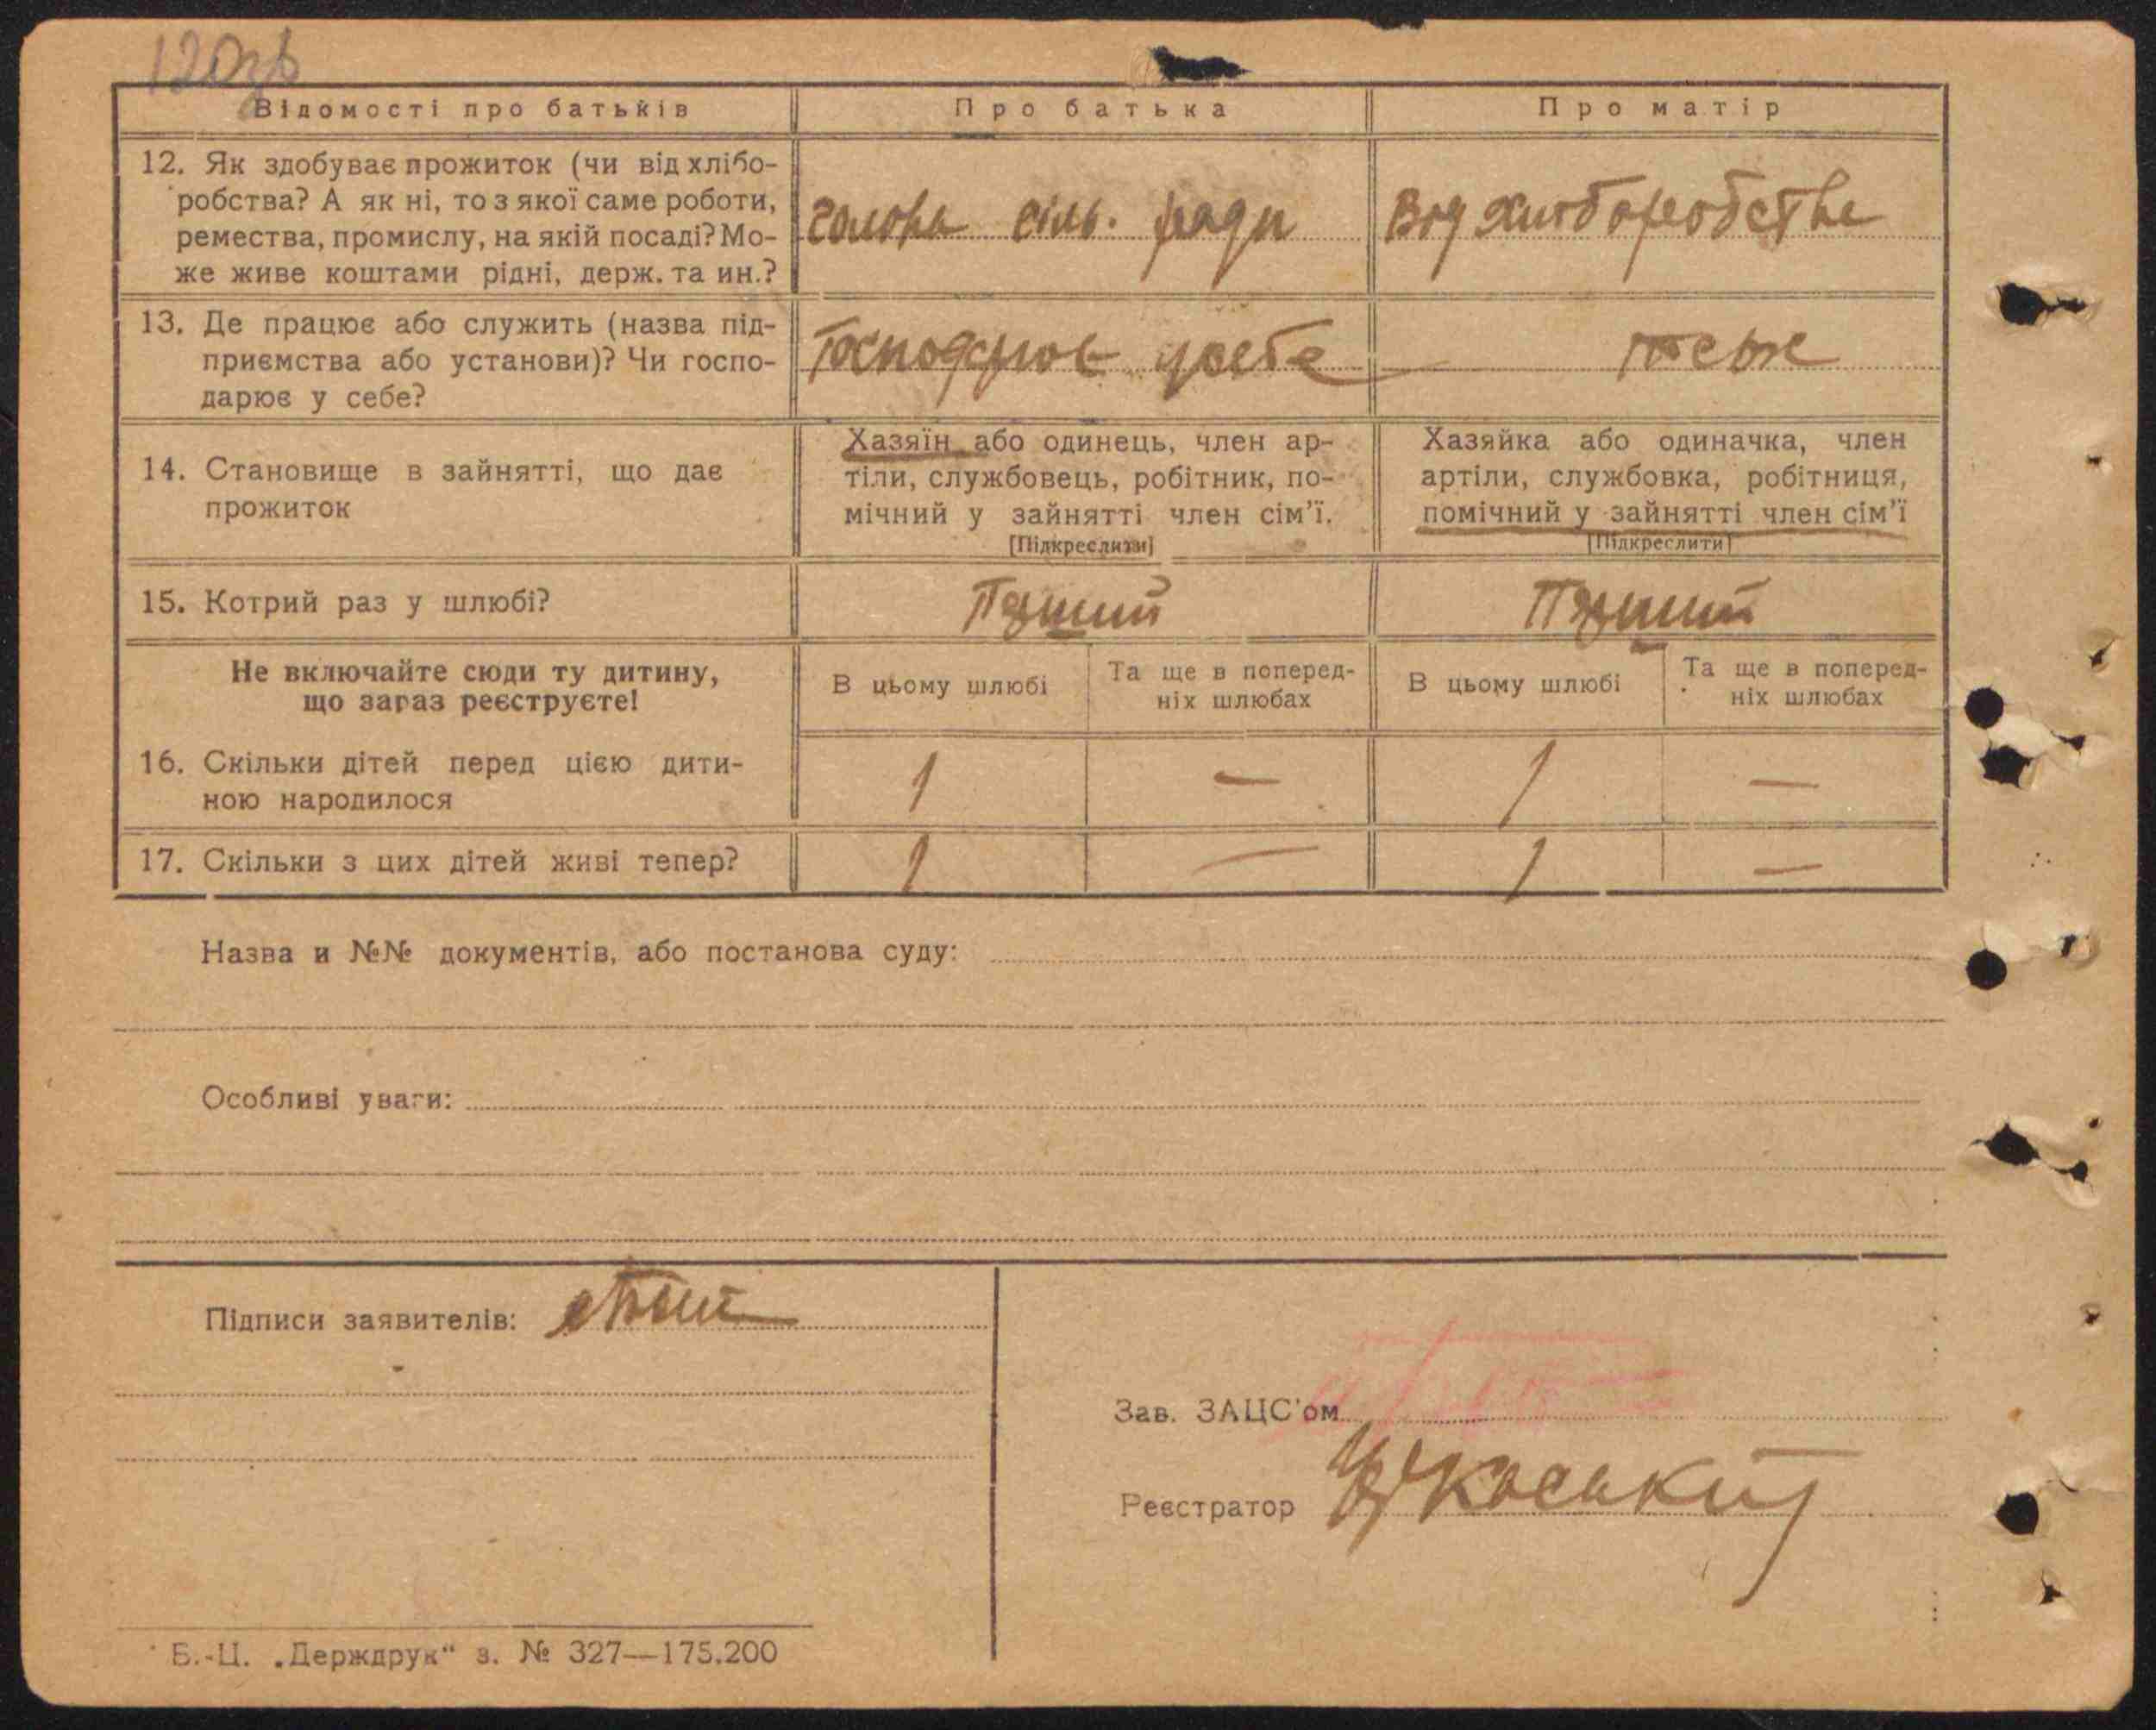 120зв
Відомості про батьків
Про батька
Про матір
12. Як здобуває прожиток (чи від хлібо-
робства? А як ні, то з якої саме роботи,
ремества, промислу, на якій посаді? Мо-
же живе коштами рідні, держ. та ин.?
голова сіль. ради
Від хліборобства
13. Де працює або служить (назва під-
приємства або установи)? Чи госпо-
дарює у себе?
Господарює у себе
теж
14. Становище в зайнятті, що дає
прожиток
Хазяїн або одинець, член ар-
тіли, службовець, робітник, по-
мічний у зайнятті член сім'ї.
[Підкреслити]
Хазяйка або одиначка, член
артіли, службовка, робітниця,
помічний у зайнятті член сім'ї
[Підкреслити]
15. Котрий раз у шлюбі?
Перший
Перший
Не включайте сюди ту дитину,
що зараз реєструєте!
В цьому шлюбі
Та ще в поперед-
ніх шлюбах
В цьому шлюбі
Та ще в поперед-
ніх шлюбах
16. Скільки дітей перед цією дити-
ною народилося
1 — 1 —
17. Скільки з цих дітей живі тепер?
1 — 1 —
Назва и №№ документів, або постанова суду:
Особливі уваги:
Підписи заявителів:
Зав. ЗАЦС'ом
Реєстратор
Б.-Ц. „Держдрук" з. № 327—175.200